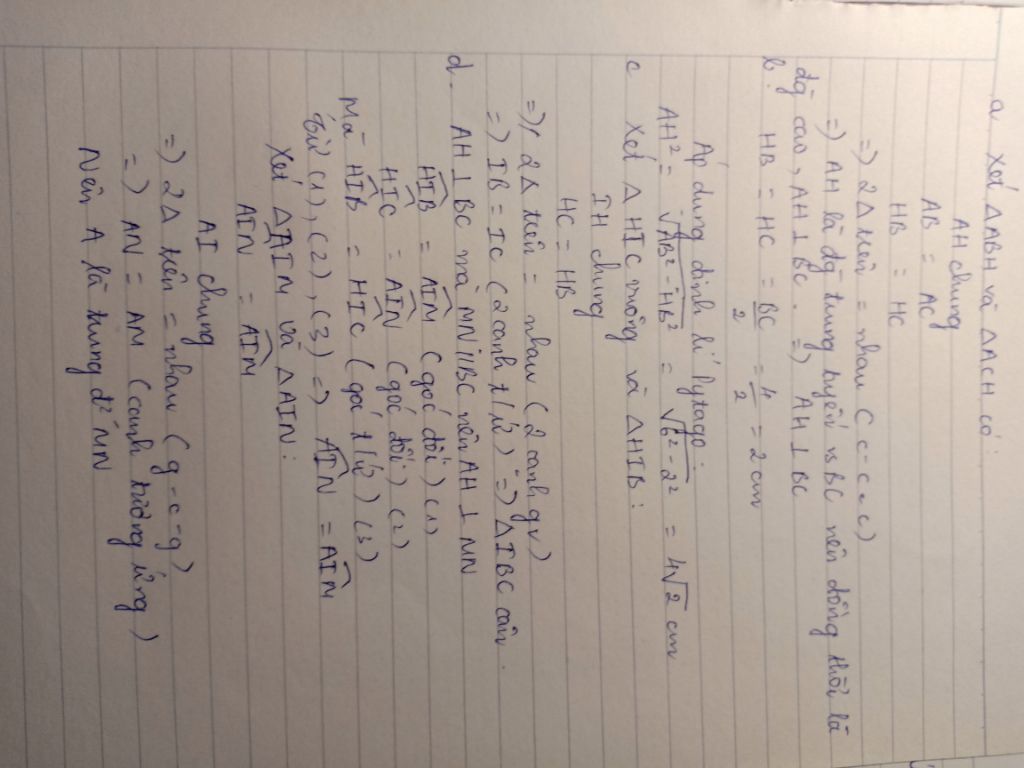 a. Xét △ABH và △ACH có:
AH chung
AB = AC
HB = HC
=) 2△ trên = nhau (c-c-c)
=) AH là đg trung tuyến vs BC nên đồng thời là
đg cao, AH ⊥ BC. =) AH ⊥ BC
b. HB = HC = BC/2 = 4/2 = 2 cm
Áp dụng định lí Pytago:
AH² = √AB² - HB² = √6² - 2² = 4√2 cm
c Xét △ HIC vuông và △HIB:
IH chung
HC = HB
=) 2△ trên = nhau (2 cạnh gv)
=) IB = IC (2 cạnh t/ứ) =) △IBC cân.
d. AH ⊥ BC mà MN//BC nên AH ⊥ MN
HIB = AIM (góc đối) (1)
HIC = AIN (góc đối) (2)
Mà HIB = HIC (góc t/ứ) (3)
Từ (1), (2), (3) =) AIN = AIM
Xét △AIM và △AIN:
AIN = AIM
AI chung
=) 2△ trên = nhau (g-c-g)
=) AN = AM (cạnh tương ứng)
Nên A là trung đ' MN